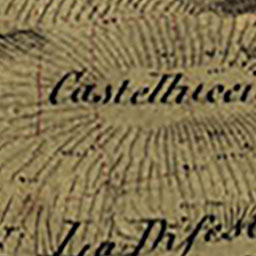 Castellucci
La Difes